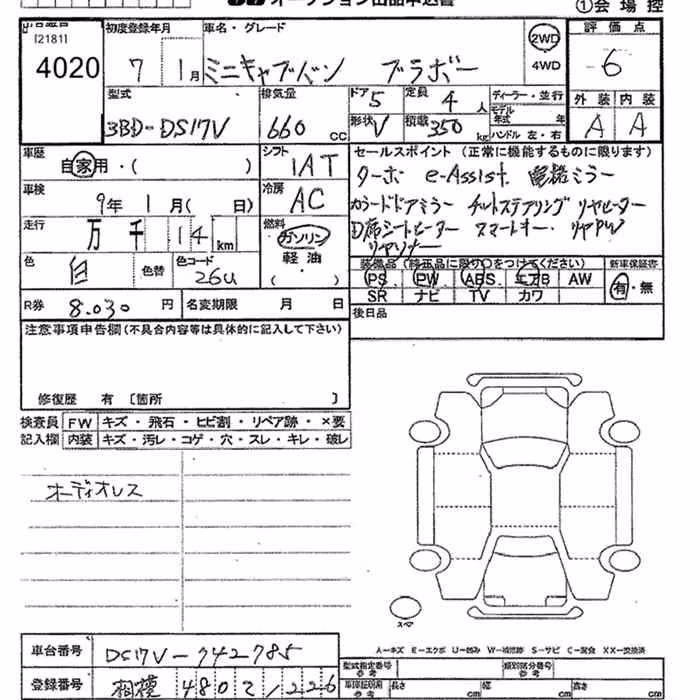 オークション出品申込書 ①会場控
[2181]
4020
初度登録年月 車名・グレード 2WD 4WD 評価点
7 1月 ミニキャブバン ブラボー 6
型式 排気量 ドア 5 定員 4人 ディーラー・並行 外装 内装
3BD-DS17V 660 cc 形状 V 積載 350 kg モデル年式 年 A A
ハンドル 左・右
車歴 自家用・( ) シフト 1AT セールスポイント (正常に機能するものに限ります)
ターボ e-Assist. 電格ミラー
車検 9年 1月( 日) 冷房 AC
カラードドアミラー チルトステアリング リヤヒーター
走行 万 千 14 km 燃料 ガソリン 軽油 ( )
D席シートヒーター スマートキー・リヤPW
リヤソナー
色 白 色替 色コード 26U
装備品 (純正品に限り○をつけてください) 新車保証書
PS PW ABS エアB AW 有・無
SR ナビ TV カワ
R券 8.030 円 名変期限 月 日
後日品
注意事項申告欄(不具合内容等は具体的に記入して下さい)
修復歴 有 [箇所 ]
検査員 FW キズ・飛石・ヒビ割・リペア跡・×要
記入欄 内装 キズ・汚レ・コゲ・穴・スレ・キレ・破レ
オーディオレス
スペア
A-キズ E-エクボ U-凹み W-補修跡 S-サビ C-腐食 XX-交換済
車台番号 DS17V-742785
型式指定番号 類別区分番号
登録番号 相模 480 2 1226
車庫証明用参考 長さ cm 幅 cm 高さ cm